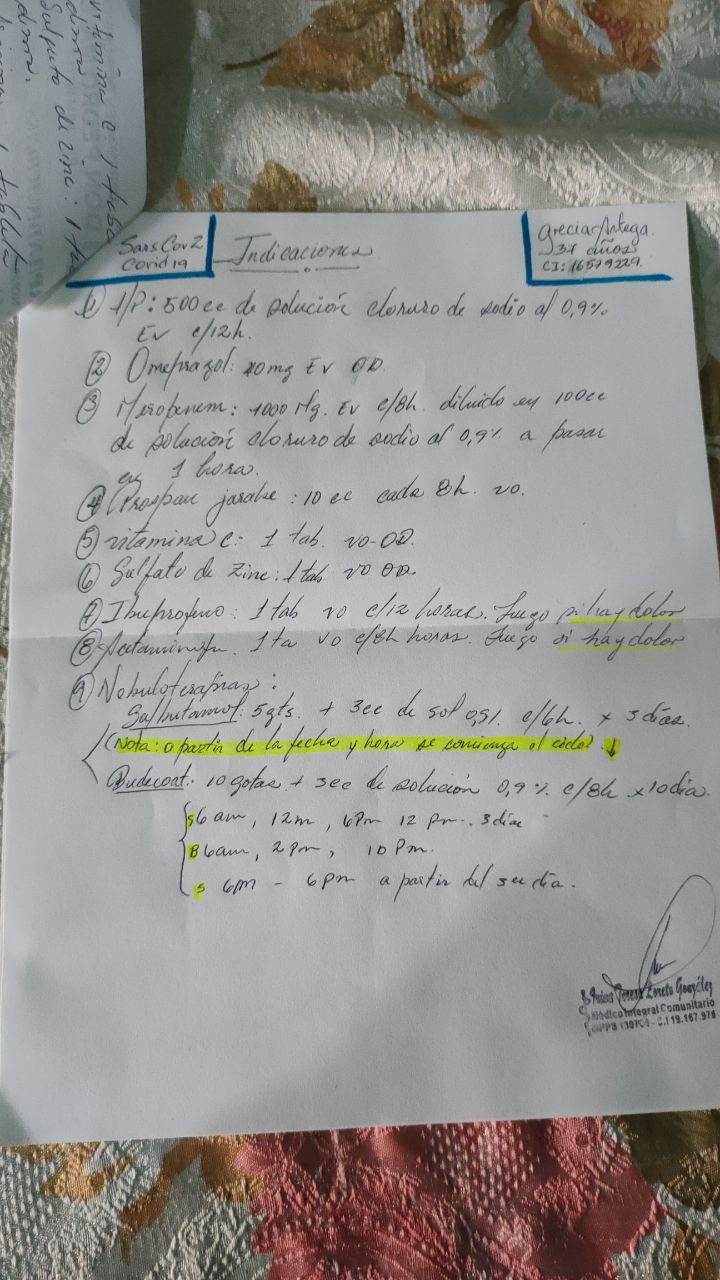 vitamina C: 1 tab
Sulfato de zinc: 1
SarsCov2
Covid19
Indicaciones
grecia Antega.
37 años
CI: 16579229.
① H/P: 500cc de solución cloruro de sodio al 0,9%
EV c/12h.
② Omeprazol: 40mg EV OD.
③ Meropenem: 1000 Mg. EV c/8h. diluido en 100cc
de solución cloruro de sodio al 0,9% a pasar
en 1 hora.
④ Prospan jarabe: 10 cc cada 8h. vo.
⑤ vitamina C: 1 tab. vo-OD.
⑥ Sulfato de Zinc: 1 tab vo OD.
⑦ Ibuprofeno: 1 tab vo c/12 horas. Luego si hay dolor
⑧ 1 ta vo c/8h horas. Luego si hay dolor
⑨ Nebuloterapias:
Salbutamol: 5gts. + 3cc de sol 0,9% c/6h. x 3 días.
(Nota: a partir de la fecha y hora se comienza el ciclo). ↓
Budecort: 10 gotas + 3cc de solución 0,9% c/8h x10 día.
S 6 am, 12m, 6Pm 12 pm. 3 días
B 6am, 2pm, 10 Pm.
S 6m - 6pm a partir del 3er día.
Teresa Loreto González
Médico Integral Comunitario
C.I 19.167.976